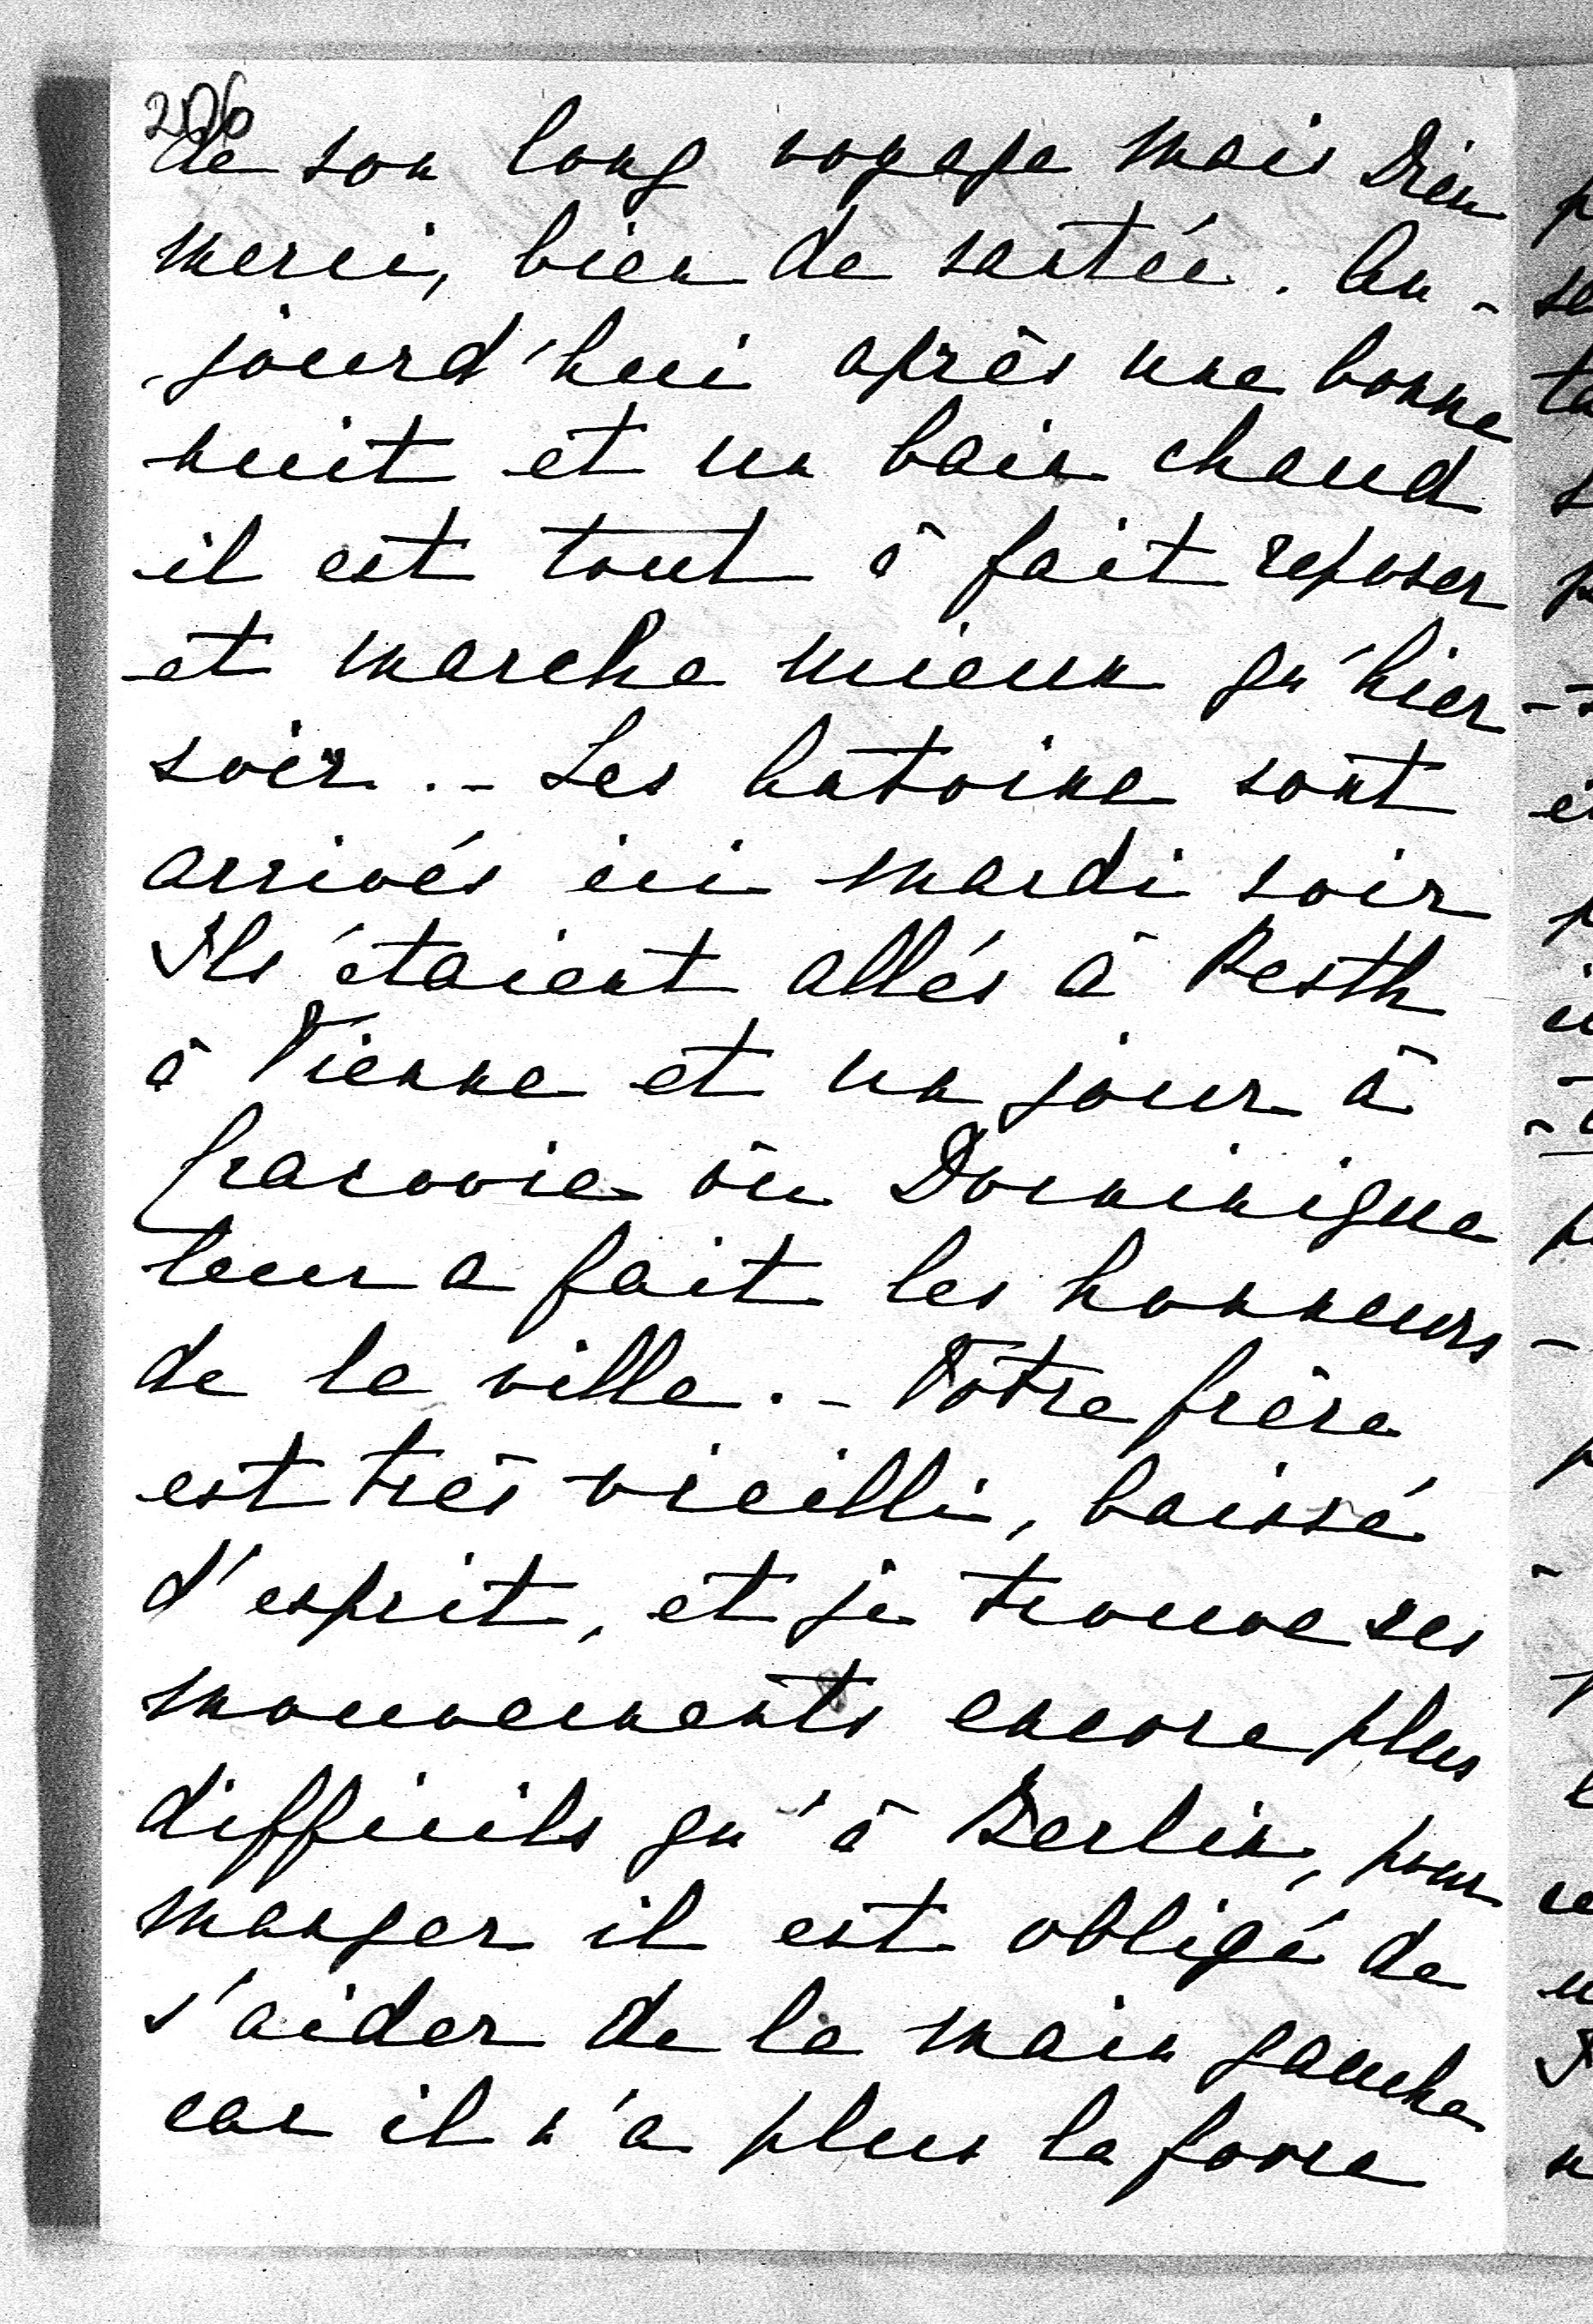 206
de son long voyage mais Dieu
merci, bien de santée. Au-
-jourd'hui après une bonne
nuit et un bain chaud
il est tout à fait reposer
et marche mieux qu'hier
soir. - Les Antoine sont
arrivés ici mardi soir
Ils étaient allés à Pesth
à Vienne et un jour à
Cracovie où Dominique
leur a fait les honneurs
de la ville. - Votre frère
est très vieilli, baissé
d'esprit, et je trouve ses
mouvements encore plus
difficils qu'à Berlin, pour
manger il est obligé de
s'aider de la main gauche
car il n'a plus la force